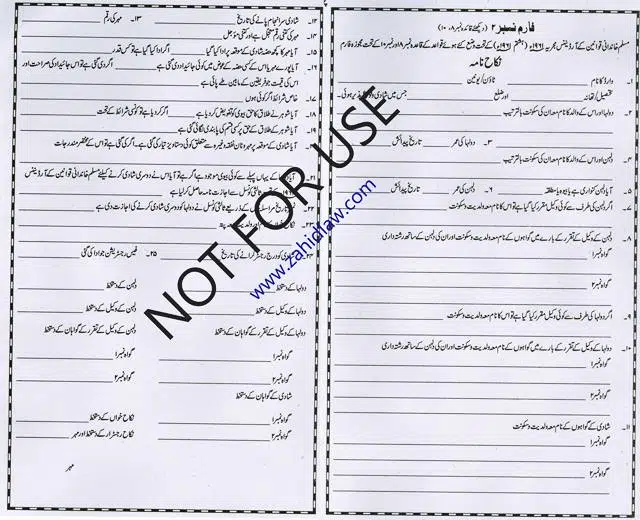 فارم نمبر ۲ (دیکھئے قاعدہ نمبر ۸، ۱۰)
مسلم خاندانی قوانین کے آرڈیننس مجریہ ۱۹۶۱ء (ہشتم ۱۹۶۱ء) کے تحت وضع کئے ہوئے قواعد کے قاعدہ نمبر ۸ اور نمبر ۱۰ کے تحت مجوزہ فارم
نکاح نامہ
وارڈ کا نام ٹاؤن/یونین
تحصیل/تھانہ اور ضلع جس میں شادی وقوع پذیر ہوئی۔
۱۔ دولہا اور اس کے والد کا نام معہ ان کی سکونت بالترتیب
۲۔ ۳۔ دولہا کی عمر تاریخ پیدائش
۴۔ دلہن کا نام اور اس کے والد کا نام معہ ان کی سکونت بالترتیب
۵۔ آیا دلہن کنواری ہے یا بیوہ یا مطلقہ ۶۔ دلہن کی عمر تاریخ پیدائش
۷۔ اگر دلہن کی طرف سے کوئی وکیل مقرر کیا گیا ہے تو اس کا نام معہ ولدیت و سکونت
۸۔ دلہن کے وکیل کے تقرر کے بارے میں گواہوں کے نام معہ ولدیت و سکونت اور ان کی دلہن کے ساتھ رشتہ داری
گواہ نمبر ۱
گواہ نمبر ۲
۹۔ اگر دولہا کی طرف سے کوئی وکیل مقرر کیا گیا ہے تو اس کا نام معہ ولدیت و سکونت
۱۰۔ دولہا کے وکیل کے تقرر کے بارے میں گواہوں کے نام معہ ولدیت و سکونت اور ان کی دلہن کے ساتھ رشتہ داری
گواہ نمبر ۱
گواہ نمبر ۲
۱۱۔ شادی کے گواہوں کے نام معہ ولدیت و سکونت
گواہ نمبر ۱
گواہ نمبر ۲
۱۲۔ شادی سرانجام پانے کی تاریخ ۱۳۔ مہر کی رقم
۱۴۔ مہر کی کتنی رقم معجل ہے اور کتنی مؤجل
۱۵۔ آیا مہر کا کچھ حصہ شادی کے موقعہ پر ادا کیا گیا اگر ادا کیا گیا ہے تو کس قدر
۱۶۔ آیا پورے مہر یا اس کے کسی حصہ کے عوض میں کوئی جائیداد دی گئی ہے اگر دی گئی ہے تو اس جائیداد کی صراحت اور
اس کی قیمت جو فریقین کے مابین طے پائی ہے
۱۷۔ خاص شرائط اگر کوئی ہوں
۱۸۔ آیا شوہر نے طلاق کا حق بیوی کو تفویض کر دیا ہے اگر کر دیا ہے تو کونسی شرائط کے تحت
۱۹۔ آیا شوہر کے طلاق کے حق پر کسی قسم کی پابندی لگائی گئی ہے
۲۰۔ آیا شادی کے موقعہ پر مہر و نان نفقہ وغیرہ سے متعلق کوئی دستاویز تیار کی گئی ہے۔ اگر کی گئی ہے تو اس کے مختصر مندرجات
۲۱۔ آیا دولہا کے ہاں پہلے سے کوئی بیوی موجود ہے اگر ہے تو آیا اس نے دوسری شادی کرنے کیلئے مسلم خاندانی قوانین کے آرڈیننس
۱۹۶۱ء کے تحت ثالثی کونسل سے اجازت نامہ حاصل کر لیا ہے
۲۲۔ نمبر و تاریخ مراسلہ جس کے ذریعے ثالثی کونسل نے دولہا کو دوسری شادی کرنے کی اجازت دی ہے
۲۳۔
۲۴۔ شادی کو درج رجسٹر کرانے کی تاریخ ۲۵۔ فیس رجسٹریشن جو ادا کی گئی
دولہا کے دستخط دلہن کے دستخط
دولہا کے وکیل کے دستخط دلہن کے وکیل کے دستخط
دولہا کے وکیل کے تقرر کے گواہان کے دستخط دلہن کے وکیل کے تقرر کے گواہان کے دستخط
گواہ نمبر ۱ گواہ نمبر ۱
گواہ نمبر ۲ گواہ نمبر ۲
شادی کے گواہان کے دستخط
گواہ نمبر ۱ نکاح خواں کے دستخط
گواہ نمبر ۲ نکاح رجسٹرار کے دستخط اور مہر
مہر
NOT FOR USE
www.zahidlaw.com